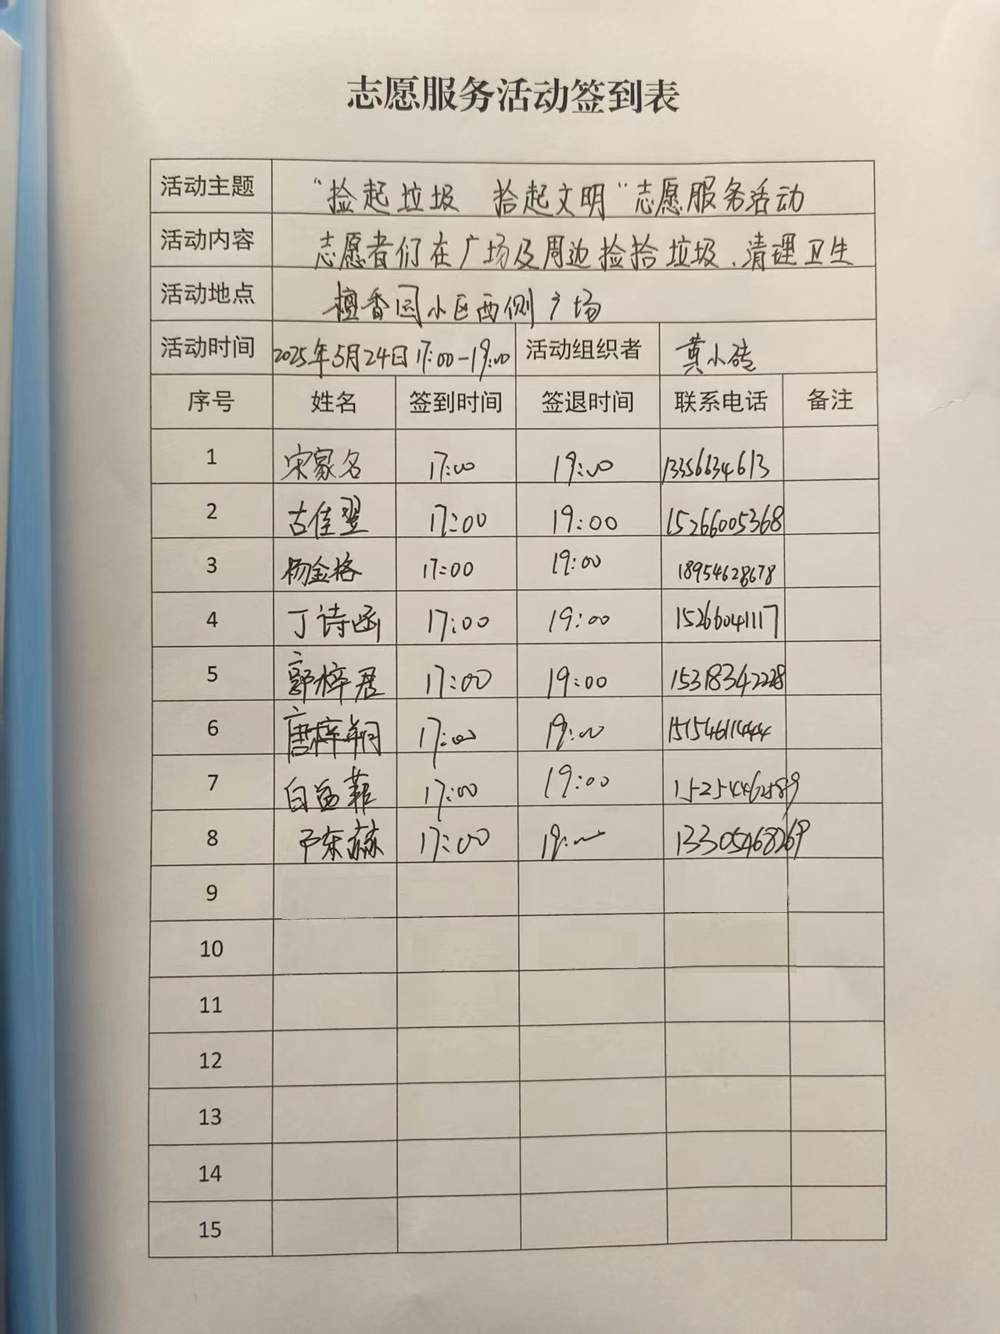 志愿服务活动签到表
活动主题 “捡起垃圾 拾起文明”志愿服务活动
活动内容 志愿者们在广场及周边捡拾垃圾、清理卫生
活动地点 檀香园小区西侧广场
活动时间 2025年5月24日 17:00-19:00 活动组织者 黄小
序号 姓名 签到时间 签退时间 联系电话 备注
1 宋家名 17:00 19:00 13356634613
2 古佳翌 17:00 19:00 15266005368
3 杨金格 17:00 19:00 18954628678
4 丁诗函 17:00 19:00 15266041117
5 郭梓君 17:00 19:00 15318342228
6 唐梓 17:00 19:00 15154611444
7 白 菲 17:00 19:00
8 17:00 19:00 13305468269
9
10
11
12
13
14
15